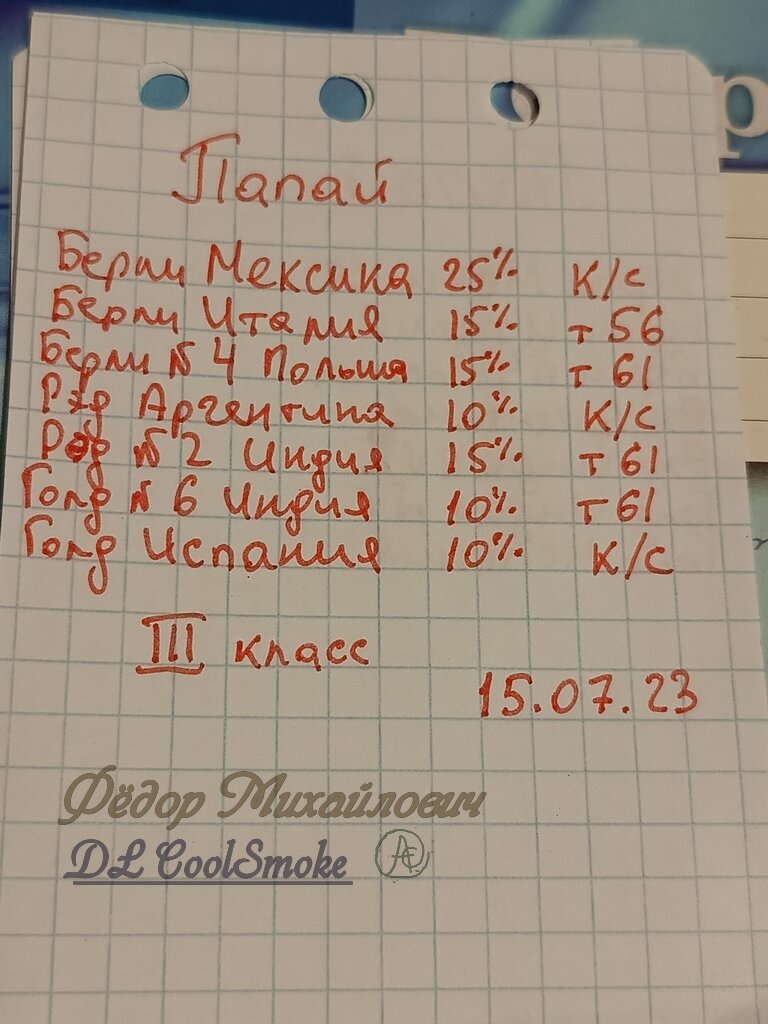 Папай
Берли Мексика 25% К/с
Берли Италия 15% т 56
Берли №4 Польша 15% т 61
Рэд Аргентина 10% К/с
Рэд №2 Индия 15% т 61
Голд №6 Индия 10% т 61
Голд Испания 10% К/с
III класс
15.07.23
Фёдор Михайлович
DL CoolSmoke
р